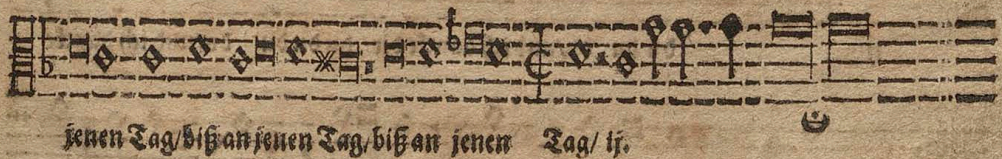 jenen Tag/biß an jenen Tag/biß an jenen Tag/ ij.